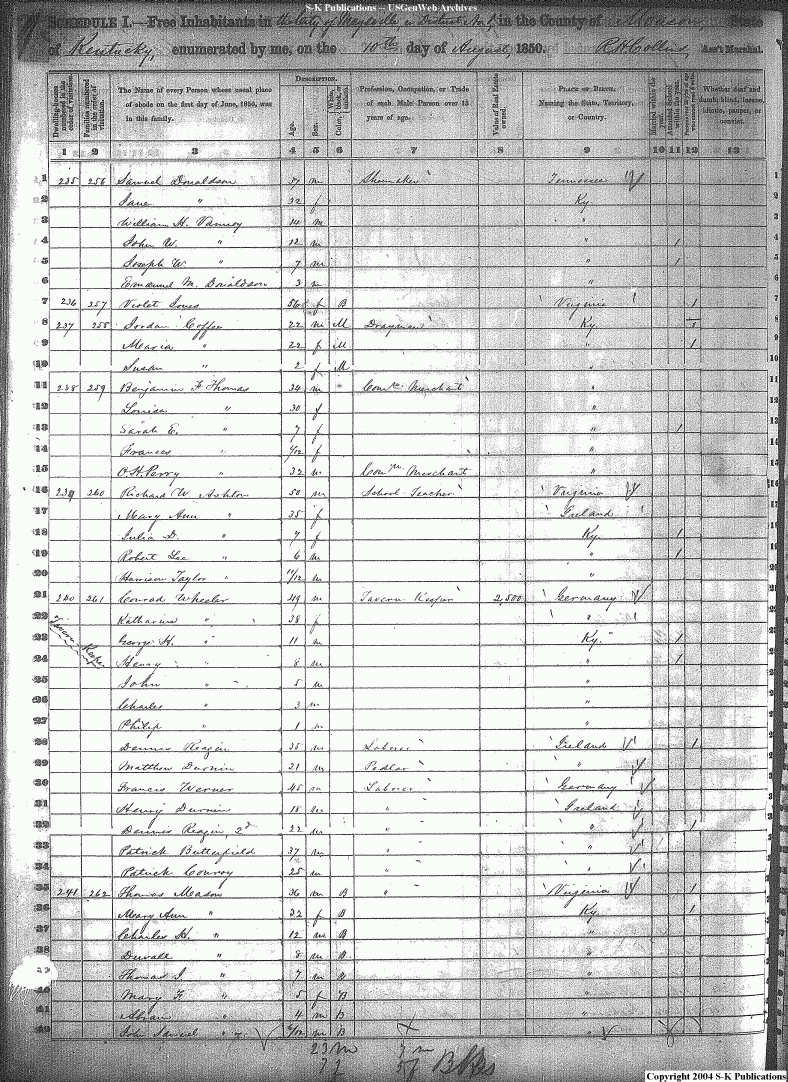 S-K Publications -- USGenWeb Archives
SCHEDULE I.—Free Inhabitants in the City of Maysville in District No. 1, in the County of Mason, State
of Kentucky, enumerated by me, on the 10th day of August, 1850. R.H. Collins, Ass't Marshal.
Dwelling-houses numbered in the order of visitation.
Families numbered in the order of visitation.
The Name of every Person whose usual place of abode on the first day of June, 1850, was in this family.
DESCRIPTION.
Age.
Sex.
Color, White, black, or mulatto.
Profession, Occupation, or Trade of each Male Person over 15 years of age.
Value of Real Estate owned.
PLACE OF BIRTH. Naming the State, Territory, or Country.
Married within the year.
Attended School within the year.
Whether deaf and dumb, blind, insane, idiotic, pauper, or convict.
1 2 3 4 5 6 7 8 9 10 11 12 13
1 235 256 Samuel Donaldson 37 m Shomaker Tennessee 1
2 Jane " 32 f Ky 2
3 William H. Vannoy 14 m " 3
4 John W. " 12 m " 1 4
5 Joseph W " 7 m " 1 5
6 Emanuel M. Donaldson 3 m " 6
7 236 257 Violet Jones 56 f B Virginia 1 7
8 237 258 Jordan Coffee 22 m M Drayman Ky. 1 8
9 Maria " 22 f M " 1 9
10 Susan " 2 f M " 10
11 238 259 Benjamin F Thomas 34 m Comn Merchant " 11
12 Louisa " 30 f " 12
13 Sarah E. " 7 f " 1 13
14 Frances " f " 14
15 O.H. Perry " 32 m Comn Merchant " 15
16 239 260 Richard W. Ashton 50 m School Teacher Virginia 16
17 Mary Ann " 35 f Ireland 17
18 Julia D. " 7 f Ky. 1 18
19 Robert Lee " 6 m " 1 19
20 Harrison Taylor " 11/12 m " 20
21 240 261 Conrad Wheeler 49 m Tavern Keeper 2,500 Germany 21
22 Katharina " 38 f " 22
Tavern Keeper
23 George H. " 11 m Ky. 1 23
24 Henry " 8 m " 1 24
25 John " 5 m " 25
26 Charles " 3 m " 26
27 Philip " 1 m " 27
28 Dennis Reagin 35 m Laborer Ireland 1 28
29 Matthew Durnin 21 m Pedlar " 29
30 Francis Werner 45 m Laborer Germany 30
31 Henry Durnin 18 m " Ireland 31
32 Dennis Reagin, 2d 22 m " " 1 32
33 Patrick Butterfield 37 m " " 33
34 Patrick Conroy 25 m " " 34
35 241 262 Thomas Meason 36 m B " Virginia 1 35
36 Mary Ann " 32 f B Ky. 1 36
37 Charles H. " 12 m B " 37
38 Duvall " 8 m B " 38
39 Thomas J. " 7 m B " 39
40 Mary F. " 5 f B " 40
41 Abram " 4 m B " 41
42 John Samuel " m B " 42
23 m
7 f
Copyright 2004 S-K Publications